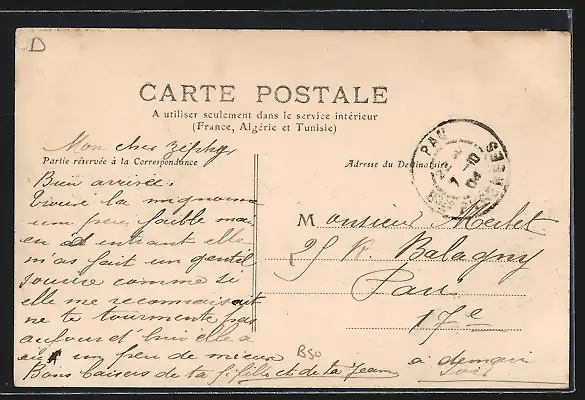 D
CARTE POSTALE
A utiliser seulement dans le service intérieur
(France, Algérie et Tunisie)
Mon cher Zéphyr
Partie réservée à la Correspondance
Adresse du Destinataire
PAU
7-10
04
BSES PYRENEES
Bien arrivée.
Trouvé la mignonne
un peu faible mais
en entrant elle
m'as fait un gentil
sourire comme si
elle me reconnaissait
ne te tourmente pas
aujourd'hui elle a
un peu de mieux
Bons baisers de ta fifille et de la Jeam
Monsieur Merlet
25 R. Balagny
Pau
17e
à demain
soir
B50